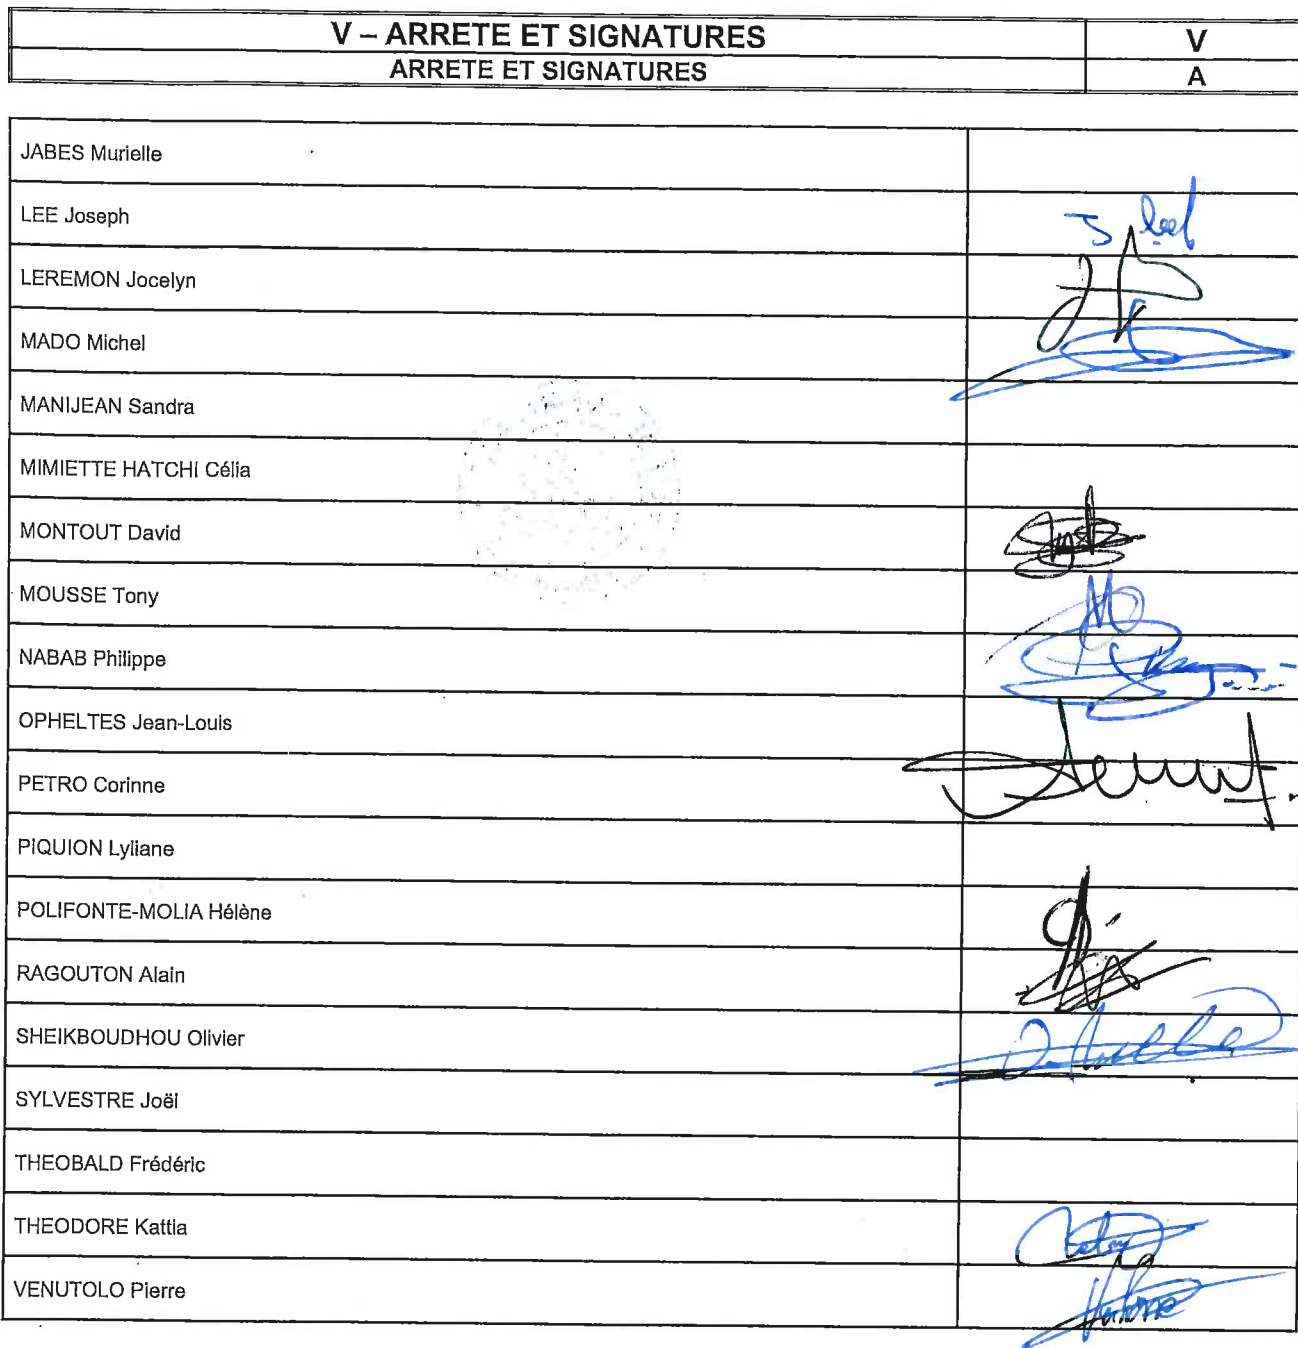 V – ARRETE ET SIGNATURES V
ARRETE ET SIGNATURES A
JABES Murielle
LEE Joseph J Lee
LEREMON Jocelyn
MADO Michel
MANIJEAN Sandra
MIMIETTE HATCHI Célia
MONTOUT David
MOUSSE Tony
NABAB Philippe
OPHELTES Jean-Louis
PETRO Corinne
PIQUION Lyliane
POLIFONTE-MOLIA Hélène
RAGOUTON Alain
SHEIKBOUDHOU Olivier
SYLVESTRE Joël
THEOBALD Frédéric
THEODORE Kattia
VENUTOLO Pierre